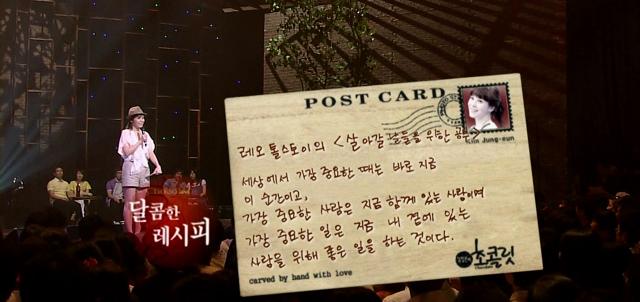 POST CARD
Kim Jung-eun
레오 톨스토이의 <살아갈 날들을 위한 공부>
세상에서 가장 중요한 때는 바로 지금
이 순간이고,
가장 중요한 사람은 지금 함께 있는 사람이며
가장 중요한 일은 지금 내 곁에 있는
사람을 위해 좋은 일을 하는 것이다.
carved by hand with love
초콜릿
달콤한
레시피